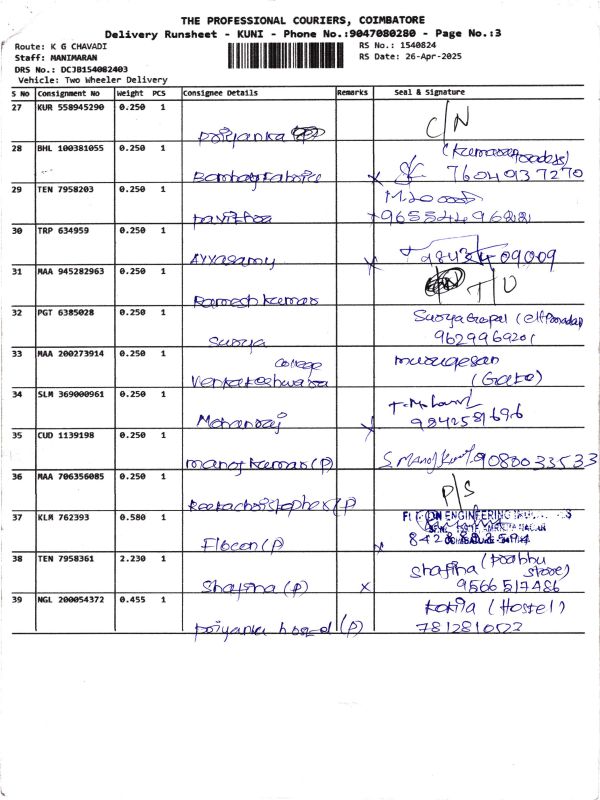 THE PROFESSIONAL COURIERS, COIMBATORE
Delivery Runsheet - KUNI - Phone No.:9047080280 - Page No.:3
Route: K G CHAVADI
RS No.: 1540824
Staff: MANIMARAN
RS Date: 26-Apr-2025
DRS No.: DCJB154082403
Vehicle: Two Wheeler Delivery
S No Consignment No Weight PCS Consignee Details Remarks Seal & Signature
27 KUR 558945290 0.250 1
Priyanka (P) C/N
28 BHL 100381055 0.250 1
7604937270
29 TEN 7958203 0.250 1
Pavithra 96554496881
30 TRP 634959 0.250 1
Ayyasamy 98434 09009
31 MAA 945282963 0.250 1
Ramesh Kumar T/U
32 PGT 6385028 0.250 1
Surya Gopal
Surya 9629969201
33 MAA 200273914 0.250 1
College murugesan
Venkateshwara (Gate)
34 SLM 369000961 0.250 1
Mohanraj 9842581696
35 CUD 1139198 0.250 1
manoj kumar (P) S. Manoj Kumar 9080033533
36 MAA 706356085 0.250 1
Reetachristopher (P) P/S
37 KLM 762393 0.580 1
ENGINEERING
Flocon (P)
38 TEN 7958361 2.230 1
Shafina (Prabhu Store)
Shafina (P) x 9566517486
39 NGL 200054372 0.455 1
Kokila (Hostel)
Priyanka hostel (P) 7812810523